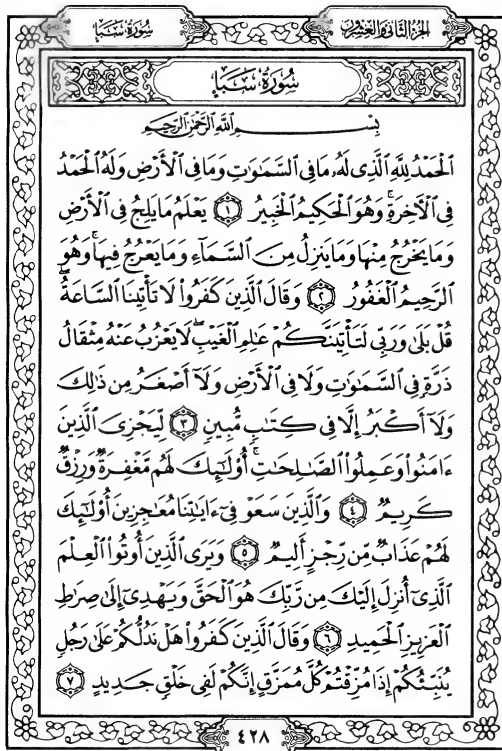 الجزء الثاني والعشرون
سُورَةُ سَبَإٍ
سُورَةُ سَبَإٍ
بِسْمِ ٱللَّهِ ٱلرَّحْمَٰنِ ٱلرَّحِيمِ
ٱلْحَمْدُ لِلَّهِ ٱلَّذِى لَهُۥ مَا فِى ٱلسَّمَٰوَٰتِ وَمَا فِى ٱلْأَرْضِ وَلَهُ ٱلْحَمْدُ
فِى ٱلْءَاخِرَةِ ۚ وَهُوَ ٱلْحَكِيمُ ٱلْخَبِيرُ ١ يَعْلَمُ مَا يَلِجُ فِى ٱلْأَرْضِ
وَمَا يَخْرُجُ مِنْهَا وَمَا يَنزِلُ مِنَ ٱلسَّمَآءِ وَمَا يَعْرُجُ فِيهَا ۚ وَهُوَ
ٱلرَّحِيمُ ٱلْغَفُورُ ٢ وَقَالَ ٱلَّذِينَ كَفَرُوا۟ لَا تَأْتِينَا ٱلسَّاعَةُ ۖ
قُلْ بَلَىٰ وَرَبِّى لَتَأْتِيَنَّكُمْ عَٰلِمِ ٱلْغَيْبِ ۖ لَا يَعْزُبُ عَنْهُ مِثْقَالُ
ذَرَّةٍ فِى ٱلسَّمَٰوَٰتِ وَلَا فِى ٱلْأَرْضِ وَلَآ أَصْغَرُ مِن ذَٰلِكَ
وَلَآ أَكْبَرُ إِلَّا فِى كِتَٰبٍ مُّبِينٍ ٣ لِّيَجْزِىَ ٱلَّذِينَ
ءَامَنُوا۟ وَعَمِلُوا۟ ٱلصَّٰلِحَٰتِ ۚ أُو۟لَٰٓئِكَ لَهُم مَّغْفِرَةٌ وَرِزْقٌ
كَرِيمٌ ٤ وَٱلَّذِينَ سَعَوْ فِىٓ ءَايَٰتِنَا مُعَٰجِزِينَ أُو۟لَٰٓئِكَ
لَهُمْ عَذَابٌ مِّن رِّجْزٍ أَلِيمٌ ٥ وَيَرَى ٱلَّذِينَ أُوتُوا۟ ٱلْعِلْمَ
ٱلَّذِىٓ أُنزِلَ إِلَيْكَ مِن رَّبِّكَ هُوَ ٱلْحَقَّ وَيَهْدِىٓ إِلَىٰ صِرَٰطِ
ٱلْعَزِيزِ ٱلْحَمِيدِ ٦ وَقَالَ ٱلَّذِينَ كَفَرُوا۟ هَلْ نَدُلُّكُمْ عَلَىٰ رَجُلٍ
يُنَبِّئُكُمْ إِذَا مُزِّقْتُمْ كُلَّ مُمَزَّقٍ إِنَّكُمْ لَفِى خَلْقٍ جَدِيدٍ ٧
٤٢٨